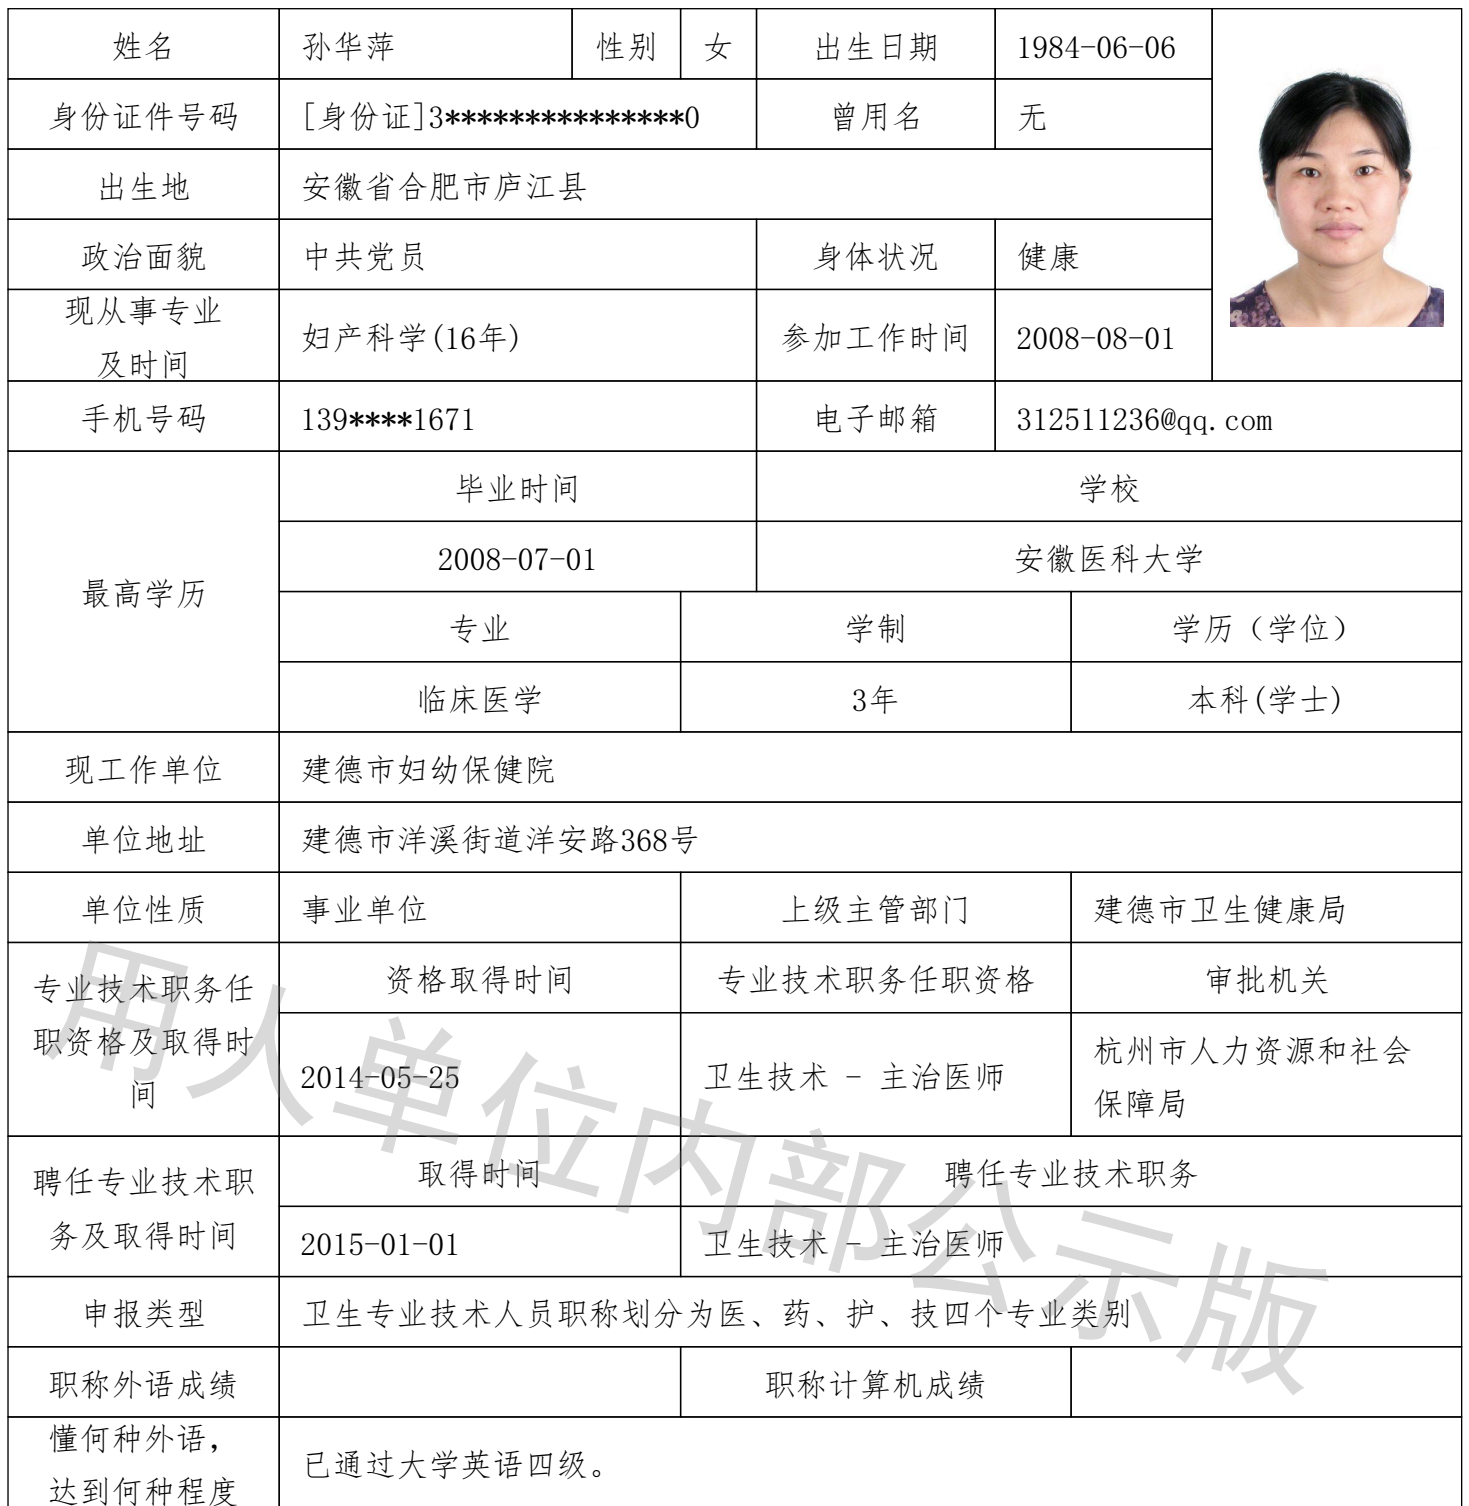 姓名 孙华萍 性别 女 出生日期 1984-06-06
身份证件号码 [身份证]3***************0 曾用名 无
出生地 安徽省合肥市庐江县
政治面貌 中共党员 身体状况 健康
现从事专业
及时间 妇产科学(16年) 参加工作时间 2008-08-01
手机号码 139****1671 电子邮箱 312511236@qq.com
最高学历
毕业时间 学校
2008-07-01 安徽医科大学
专业 学制 学历（学位）
临床医学 3年 本科(学士)
现工作单位 建德市妇幼保健院
单位地址 建德市洋溪街道洋安路368号
单位性质 事业单位 上级主管部门 建德市卫生健康局
专业技术职务任
职资格及取得时
间
资格取得时间 专业技术职务任职资格 审批机关
2014-05-25 卫生技术 - 主治医师 杭州市人力资源和社会
保障局
聘任专业技术职
务及取得时间
取得时间 聘任专业技术职务
2015-01-01 卫生技术 - 主治医师
申报类型 卫生专业技术人员职称划分为医、药、护、技四个专业类别
职称外语成绩 职称计算机成绩
懂何种外语，
达到何种程度 已通过大学英语四级。
用人单位内部公示版